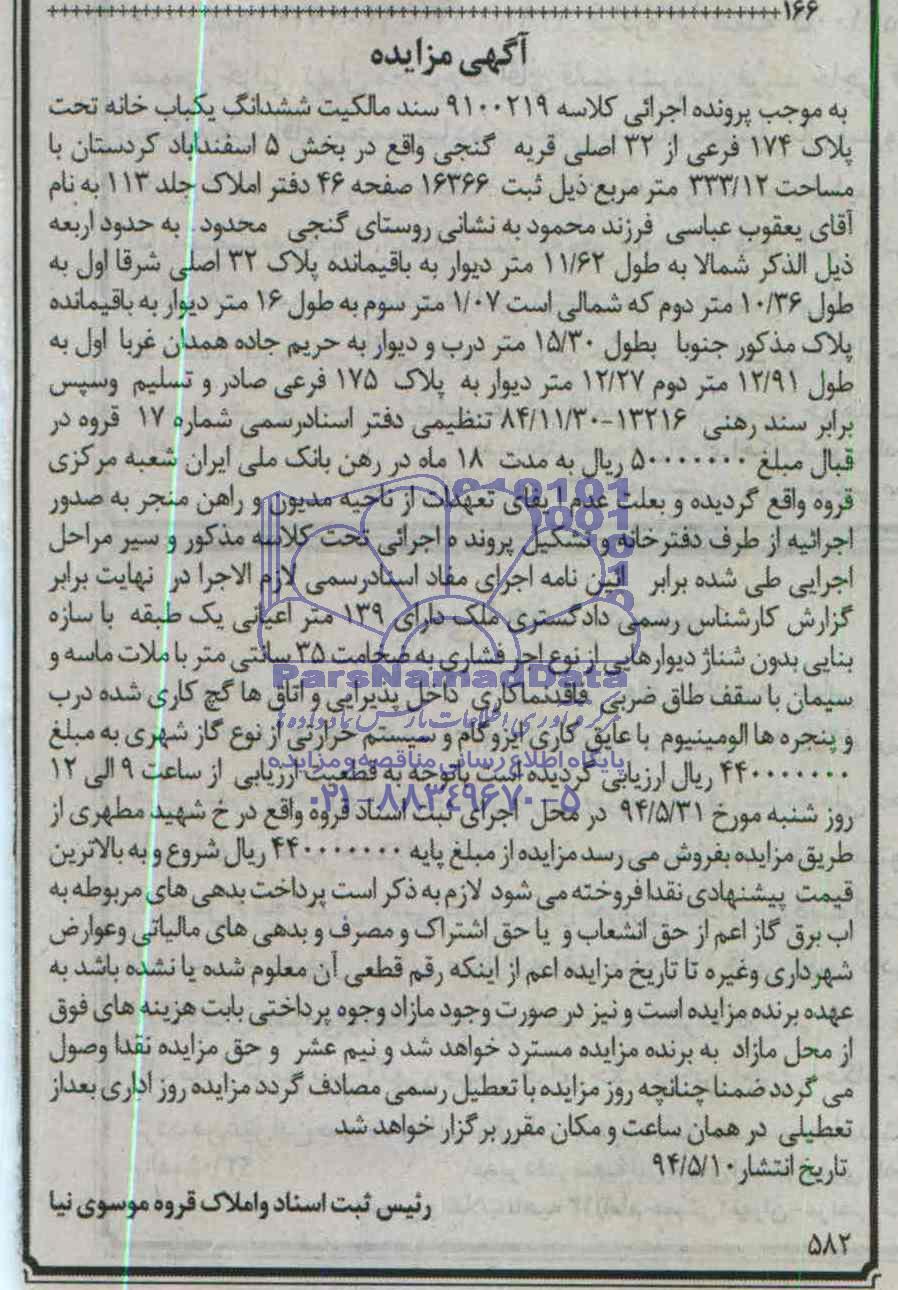 ۱۶۶
آگهی مزایده
به موجب پرونده اجرائی کلاسه ۹۱۰۰۲۱۹ سند مالکیت ششدانگ یکباب خانه تحت
پلاک ۱۷۴ فرعی از ۳۲ اصلی قریه گنجی واقع در بخش ۵ اسفندآباد کردستان با
مساحت ۳۳۳/۱۲ متر مربع ذیل ثبت ۱۶۳۶۶ صفحه ۴۶ دفتر املاک جلد ۱۱۳ به نام
آقای یعقوب عباسی فرزند محمود به نشانی روستای گنجی محدود به حدود اربعه
ذیل الذکر شمالا به طول ۱۱/۶۲ متر دیوار به باقیمانده پلاک ۳۲ اصلی شرقا اول به
طول ۱۰/۳۶ متر دوم که شمالی است ۱/۰۷ متر سوم به طول ۱۶ متر دیوار به باقیمانده
پلاک مذکور جنوبا بطول ۱۵/۳۰ متر درب و دیوار به حریم جاده همدان غربا اول به
طول ۱۲/۹۱ متر دوم ۱۲/۲۷ متر دیوار به پلاک ۱۷۵ فرعی صادر و تسلیم وسپس
برابر سند رهنی ۱۳۲۱۶-۸۴/۱۱/۳۰ تنظیمی دفتر اسنادرسمی شماره ۱۷ قروه در
قبال مبلغ ۵۰۰۰۰۰۰۰ ریال به مدت ۱۸ ماه در رهن بانک ملی ایران شعبه مرکزی
قروه واقع گردیده و بعلت عدم ایفای تعهدات از ناحیه مدیون و راهن منجر به صدور
اجرائیه از طرف دفترخانه و تشکیل پروند ه اجرائی تحت کلاسه مذکور و سیر مراحل
اجرایی طی شده برابر ائین نامه اجرای مفاد اسنادرسمی لازم الاجرا در نهایت برابر
گزارش کارشناس رسمی دادگستری ملک دارای ۱۳۹ متر اعیانی یک طبقه با سازه
بنایی بدون شناژ دیوارهایی از نوع اجر فشاری به ضخامت ۳۵ سانتی متر با ملات ماسه و
سیمان با سقف طاق ضربی فاقدنماکاری داخل پذیرایی و اتاق ها گچ کاری شده درب
و پنجره ها الومینیوم با عایق کاری ایزوگام و سیستم حرارتی از نوع گاز شهری به مبلغ
۴۴۰۰۰۰۰۰۰ ریال ارزیابی گردیده است باتوجه به قطعیت ارزیابی از ساعت ۹ الی ۱۲
روز شنبه مورخ ۹۴/۵/۳۱ در محل اجرای ثبت اسناد قروه واقع در خ شهید مطهری از
طریق مزایده بفروش می رسد مزایده از مبلغ پایه ۴۴۰۰۰۰۰۰۰ ریال شروع و به بالاترین
قیمت پیشنهادی نقدا فروخته می شود لازم به ذکر است پرداخت بدهی های مربوطه به
اب برق گاز اعم از حق انشعاب و یا حق اشتراک و مصرف و بدهی های مالیاتی وعوارض
شهرداری وغیره تا تاریخ مزایده اعم از اینکه رقم قطعی آن معلوم شده یا نشده باشد به
عهده برنده مزایده است و نیز در صورت وجود مازاد وجوه پرداختی بابت هزینه های فوق
از محل مازاد به برنده مزایده مسترد خواهد شد و نیم عشر و حق مزایده نقدا وصول
می گردد ضمنا چنانچه روز مزایده با تعطیل رسمی مصادف گردد مزایده روز اداری بعداز
تعطیلی در همان ساعت و مکان مقرر برگزار خواهد شد
تاریخ انتشار ۹۴/۵/۱۰
رئیس ثبت اسناد واملاک قروه موسوی نیا
۵۸۲
ParsNamadData
پایگاه اطلاع رسانی مناقصه و مزایده
۰۲۱-۸۸۳۴۹۶۷۰-۵